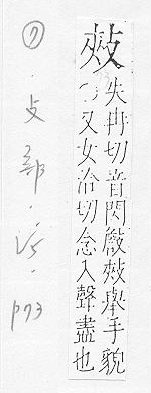 失冉切音閃敥㪎舉手貌
又女洽切念入聲盡也
⑦
攴部
p73